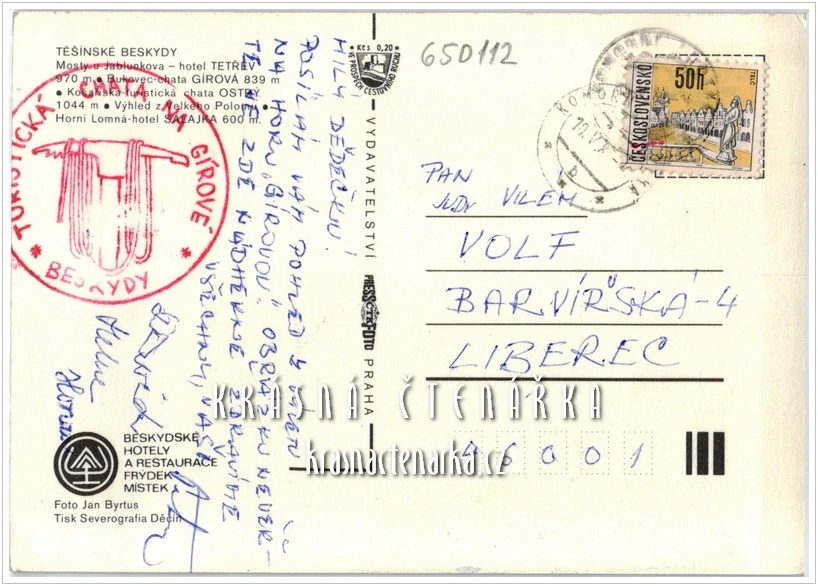 TĚŠÍNSKÉ BESKYDY
Mosty u Jablunkova – hotel TETŘEV
970 m • Bukovec-chata GÍROVÁ 839 m
• Košařiská-turistická chata OSTRÝ
1044 m • Výhled z Velkého Polomu •
Horní Lomná-hotel SALAJKA 600 m.
TURISTICKÁ CHATA NA GÍROVÉ
* BESKYDY *
MILÝ DĚDEČKU!
POSÍLÁM VÁM POHLED Z VÝLETU
NA HORU „GÍROVOU". OBRÁZKU NEVĚŘ-
TE, JE ZDE NÁDHERNĚ. ZDRAVÍME
VŠECHNY, VAŠI
David
Helena
BESKYDSKÉ
HOTELY
A RESTAURACE
FRÝDEK
MÍSTEK
Foto Jan Byrtus
Tisk Severografia Děčín
Kčs 0,20
VE PROSPĚCH CESTOVNÍHO RUCHU
VYDAVATELSTVÍ
PRESSFOTO
PRAHA
650112
ČESKOSLOVENSKO
50h
TELČ
PAN
JUDr VILÉM
VOLF
BARVÍŘSKÁ-4
LIBEREC
1
46001
KRÁSNÁ ČTENÁŘKA
krasnactenarka.cz